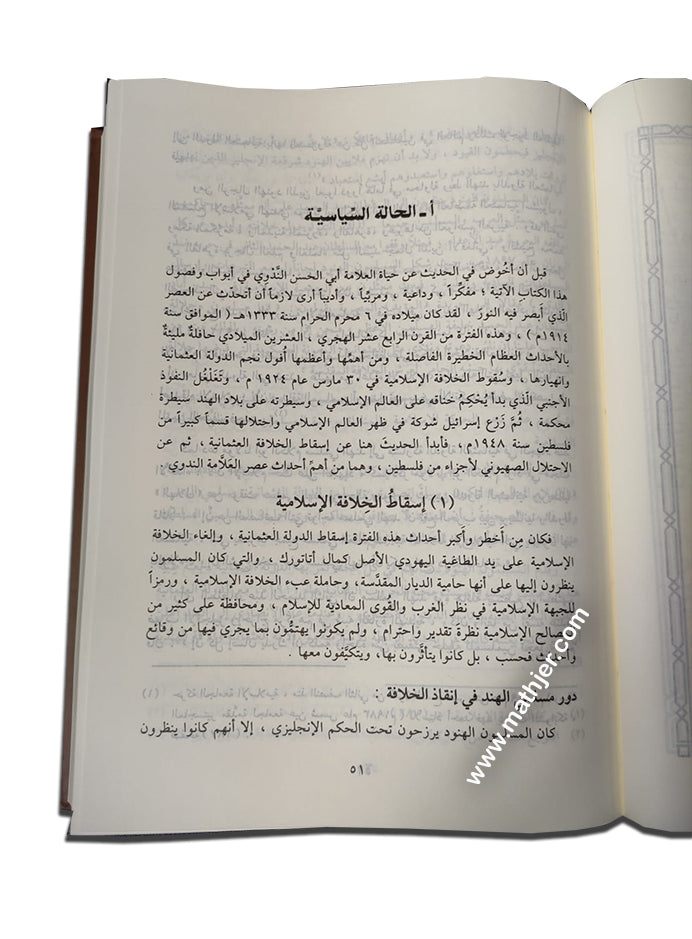 أ ـ الحالة السِّياسيَّة
قبل أن أخُوضَ في الحديث عن حياة العلامة أبي الحسن النَّدْوِي في أبواب وفصول
هذا الكتابِ الآتية ؛ مفكِّراً ، وداعية ، ومربِّياً ، وأديباً أرى لازماً أن أتحدّث عن العصر
الَّذي أَبصر فيه النورَ ، لقد كان ميلاده في ٦ محرم الحرام سنة ١٣٣٣هـ ( الموافق سنة
١٩١٤م ) ، وهذه الفترة من القرن الرابع عشر الهجري ، العشرين الميلادي حافلةٌ مليئةٌ
بالأحداث العظام الخطيرة الفاصلة ، ومن أهمِّها وأعظمها أُفول نجم الدولة العثمانية
وانهيارها ، وسُقوط الخلافة الإسلامية في ٣٠ مارس عام ١٩٢٤ م ، وتَغَلْغُل النفوذ
الأجنبي الَّذي بدأ يُحْكِمُ خناقه على العالم الإسلامي ، وسيطرته على بلاد الهند سيطرة
محكمة ، ثُمَّ زَرْع إسرائيل شوكة في ظهر العالم الإسلامي واحتلالها قسماً كبيراً من
فلسطين سنة ١٩٤٨م ، فأبدأ الحديثَ هنا عن إسقاط الخلافة العثمانية ، ثم عن
الاحتلال الصهيوني لأجزاء من فلسطين ، وهما من أهمِّ أحداث عصر العَلاَّمة الندوي .
(١) إسقاطُ الخِلافة الإسلامية
فكان مِن أخطر وأكبر أحداث هذه الفترة إسقاط الدولة العثمانية ، وإلغاء الخلافة
الإسلامية على يد الطاغية اليهودي الأصل كمال أتاتورك ، والتي كان المسلمون
ينظرون إليها على أنها حامية الديار المقدَّسة، وحاملة عبء الخلافة الإسلامية ، ورمزاً
للجبهة الإسلامية في نظر الغرب والقُوى المعادية للإسلام ، ومحافظة على كثير من
المصالح الإسلامية نظرةَ تقدير واحترام ، ولم يكونوا يهتمُّون بما يجري فيها من وقائع
وأحداث فحسب ، بل كانوا يتأثَّرون بها، ويتكيَّفون معها .
دور مسلمي الهند في إنقاذ الخلافة :
كان المسلمون الهنود يرزحون تحت الحكم الإنجليزي ، إلا أنهم كانوا ينظرون
٥١
www.mathjer.com